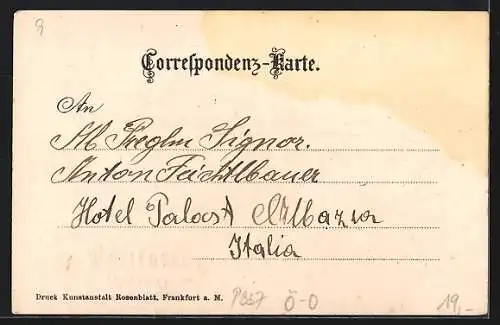 9
Correspondenz-Karte.
An
Signor.
Anton Feichtlbauer
Hotel Palast
Italia
Druck Kunstanstalt Rosenblatt, Frankfurt a. M.
Ö-O
19,-